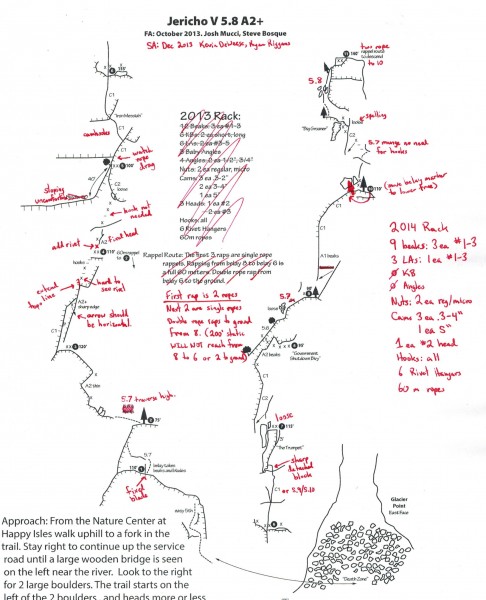 Jericho V 5.8 A2+
FA: October 2013. Josh Mucci, Steve Bosque
SA: Dec 2013
two rope
to 10
5.8
"Iron Messiah"
C1
camhooks
watch
rope
drag
sloping
uncomfortable
40'
C2
loose
hook not
needed
add rivet
fixed head
60m rappel
to
extend
"hope" line
hard to
see rivet
A2+
sharp edge
arrow should
be horizontal
A2 thin
5.7 traverse high.
75'
5.7
belay takes
beaks and Kbs
fixed
blade
2013 Rack:
3 Baby Angles
4 Angles: 2 ea 1/2", 3/4"
Nuts: 2 ea regular, micro
Cams 3 ea .3-2"
2 ea 3-4"
1 ea 5"
3 Heads: 1 ea #2
2 ea #3
Hooks: all
6 Rivet Hangers
60m ropes
Rappel Route: The first 3 raps are single rope
rappels. Rapping from belay 8 to belay 6 is
a full 60 meters. Double rope rap from
belay 6 to the ground.
First rap is 2 ropes
Next 2 are single ropes
Double rope raps to ground
from 8. (200' static
WILL NOT reach from
8 to 6 or 2 to ground)
spalling
loose
5.7 mungy no need
for hooks
C1
A1 beaks
5.7
5.8
A2 beaks
"Government
Shutdown Day"
loose
115'
"The Trumpets"
sharp
detached
block
C1 or 5.9/5.10
2014 Rack
9 beaks: 3 ea #1-3
3 LAs: 1 ea #1-3
Ø KB
Ø Angles
Nuts: 2 ea reg/micro
Cams 3 ea .3-4"
1 ea 5"
1 ea #2 head
Hooks: all
6 Rivet Hangers
60 m ropes
Glacier
Point
East Face
"Death Zone"
Approach: From the Nature Center at
Happy Isles walk uphill to a fork in the
trail. Stay right to continue up the service
road until a large wooden bridge is seen
on the left near the river. Look to the right
for 2 large boulders. The trail starts on the
left of the 2 boulders and heads more or less